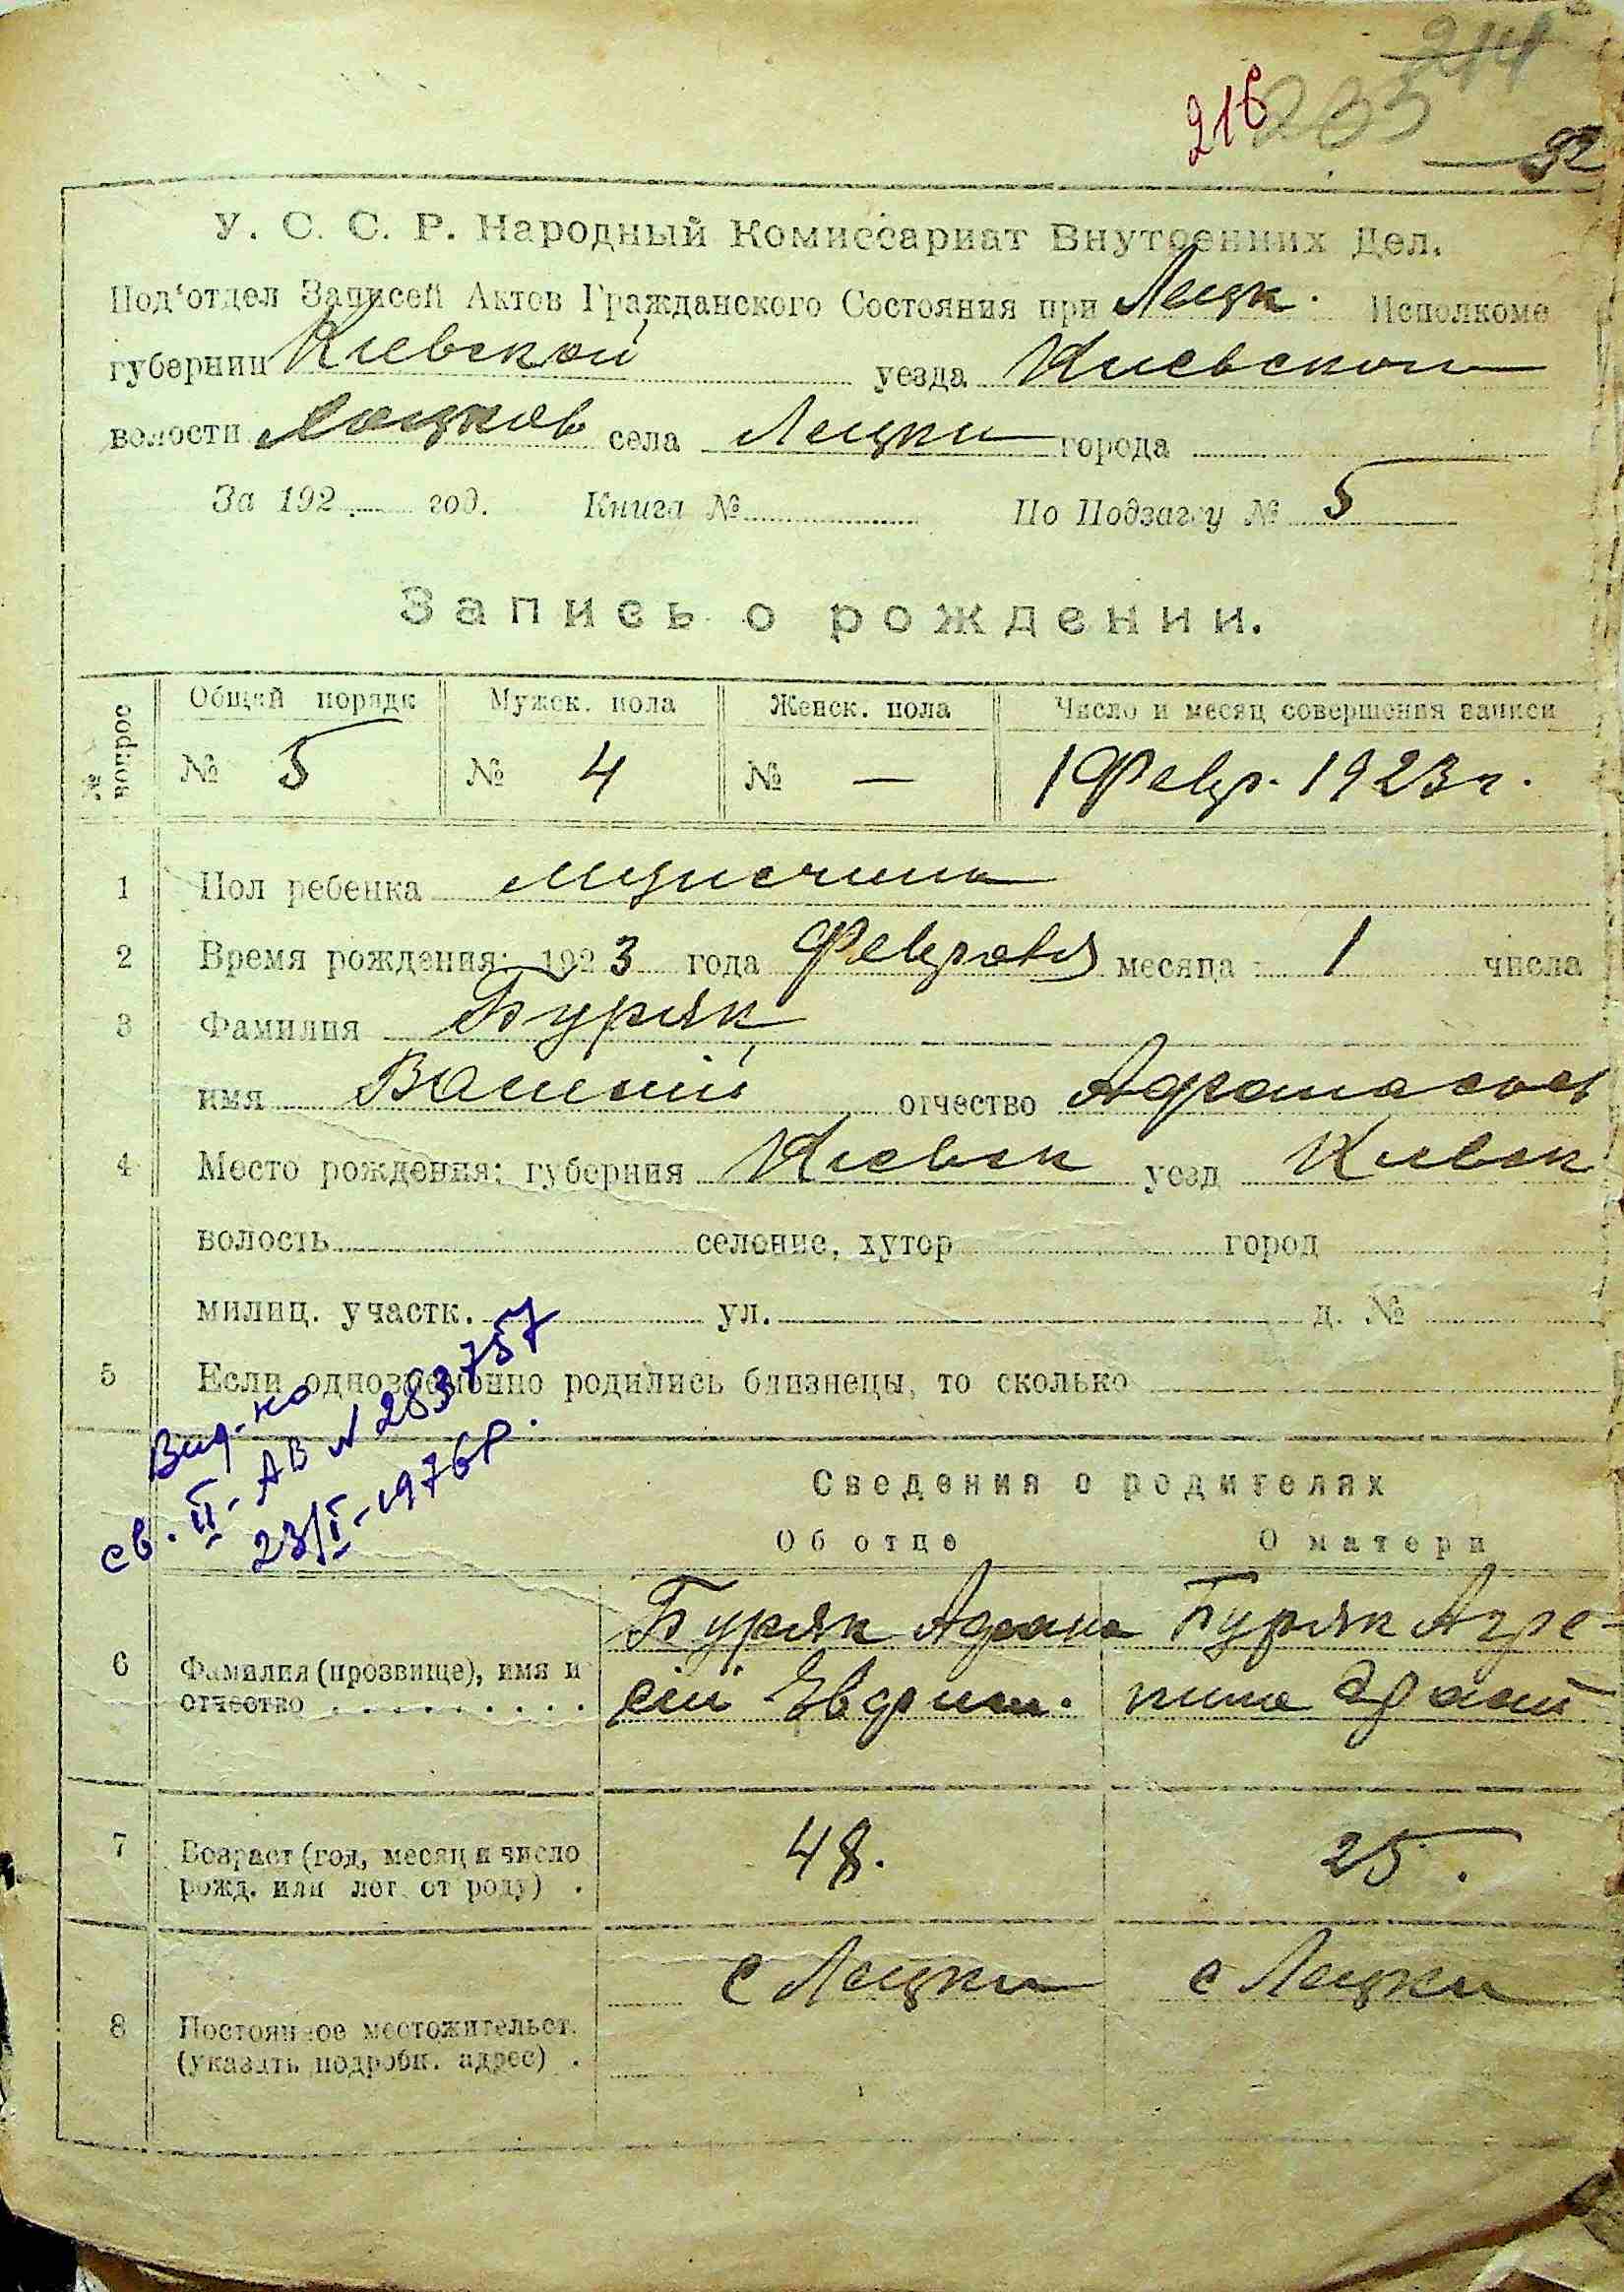 214
216 205
92
У. С. С. Р. Народный Комиссариат Внутренних Дел.
Под'отдел Записей Актов Гражданского Состояния при Лецк. Исполкоме
губернии Киевской уезда Киевского
волости села Лецки города
За 192 год. Книга № По Подзагсу № 5
Запись о рождении.
№ вопросов
Общий порядк Мужск. пола Женск. пола Число и месяц совершения записи
№ 5 № 4 № — 1 Февр. 1923 г.
1 Пол ребенка мужчина
2 Время рождения: 1923 года Февраля месяца 1 числа
3 Фамилия Буряк
имя Василий отчество Афанасьев
4 Место рождения: губерния Киевск уезд Киевск
волость селение, хутор город
милиц. участк. ул. д. №
5 Если одновременно родились близнецы, то сколько
Вид-но
св. II-АВ N 283757
23/I-1976р.
Сведения о родителях
Об отце О матери
Буряк Афана Буряк Агре-
6 Фамилия (прозвище), имя и
отчество . . . . . . . . . сий пина
7 Возраст (год, месяц и число 48. 25.
рожд. или лет от роду) .
с Лецки с Лецки
8 Постоянное местожительст.
(указать подробн. адрес) .